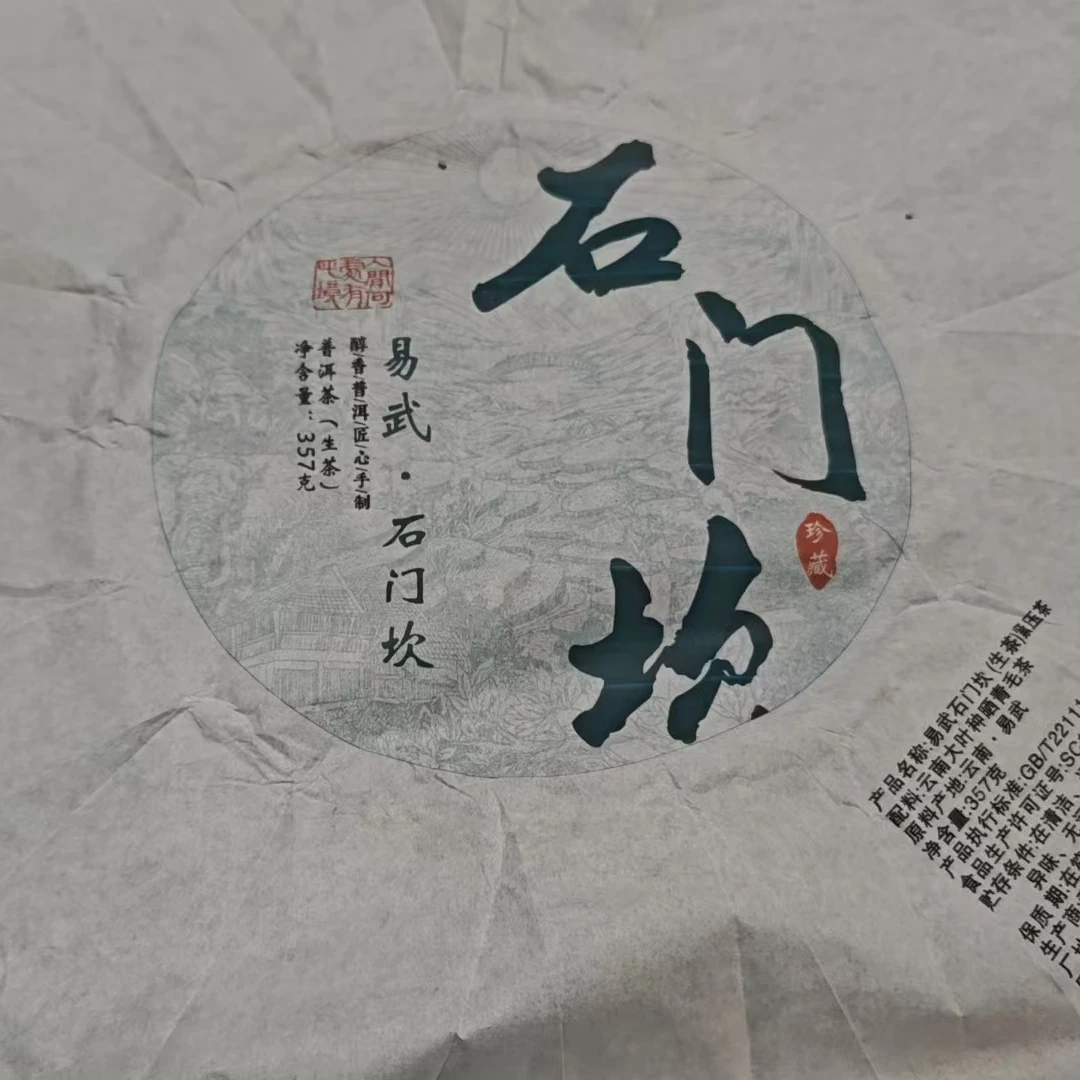 石门坎
珍藏
易武·石门坎
醇/香/普/洱/匠/心/手/制
普洱茶（生茶）
净含量：357克
人间可
处有
产品名称:易武石门坎(生茶)紧压茶
配料:云南大叶种晒青毛茶
原料产地:云南·易武
净含量:357克
产品执行标准:GB/T22111
食品生产许可证号:SC
贮存条件:在清洁、
异味、无
保质期:在
生产商
厂